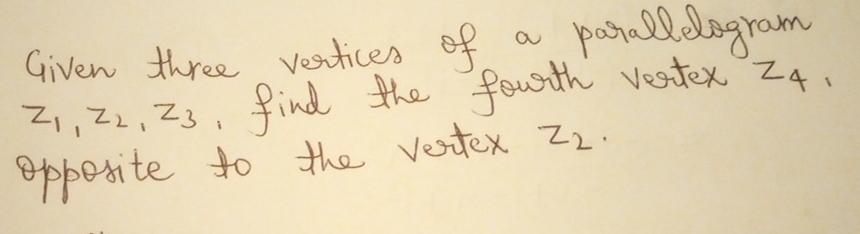 Given three vertices of a parallelogram
z₁, z₂, z₃, find the fourth vertex z₄,
opposite to the vertex z₂.